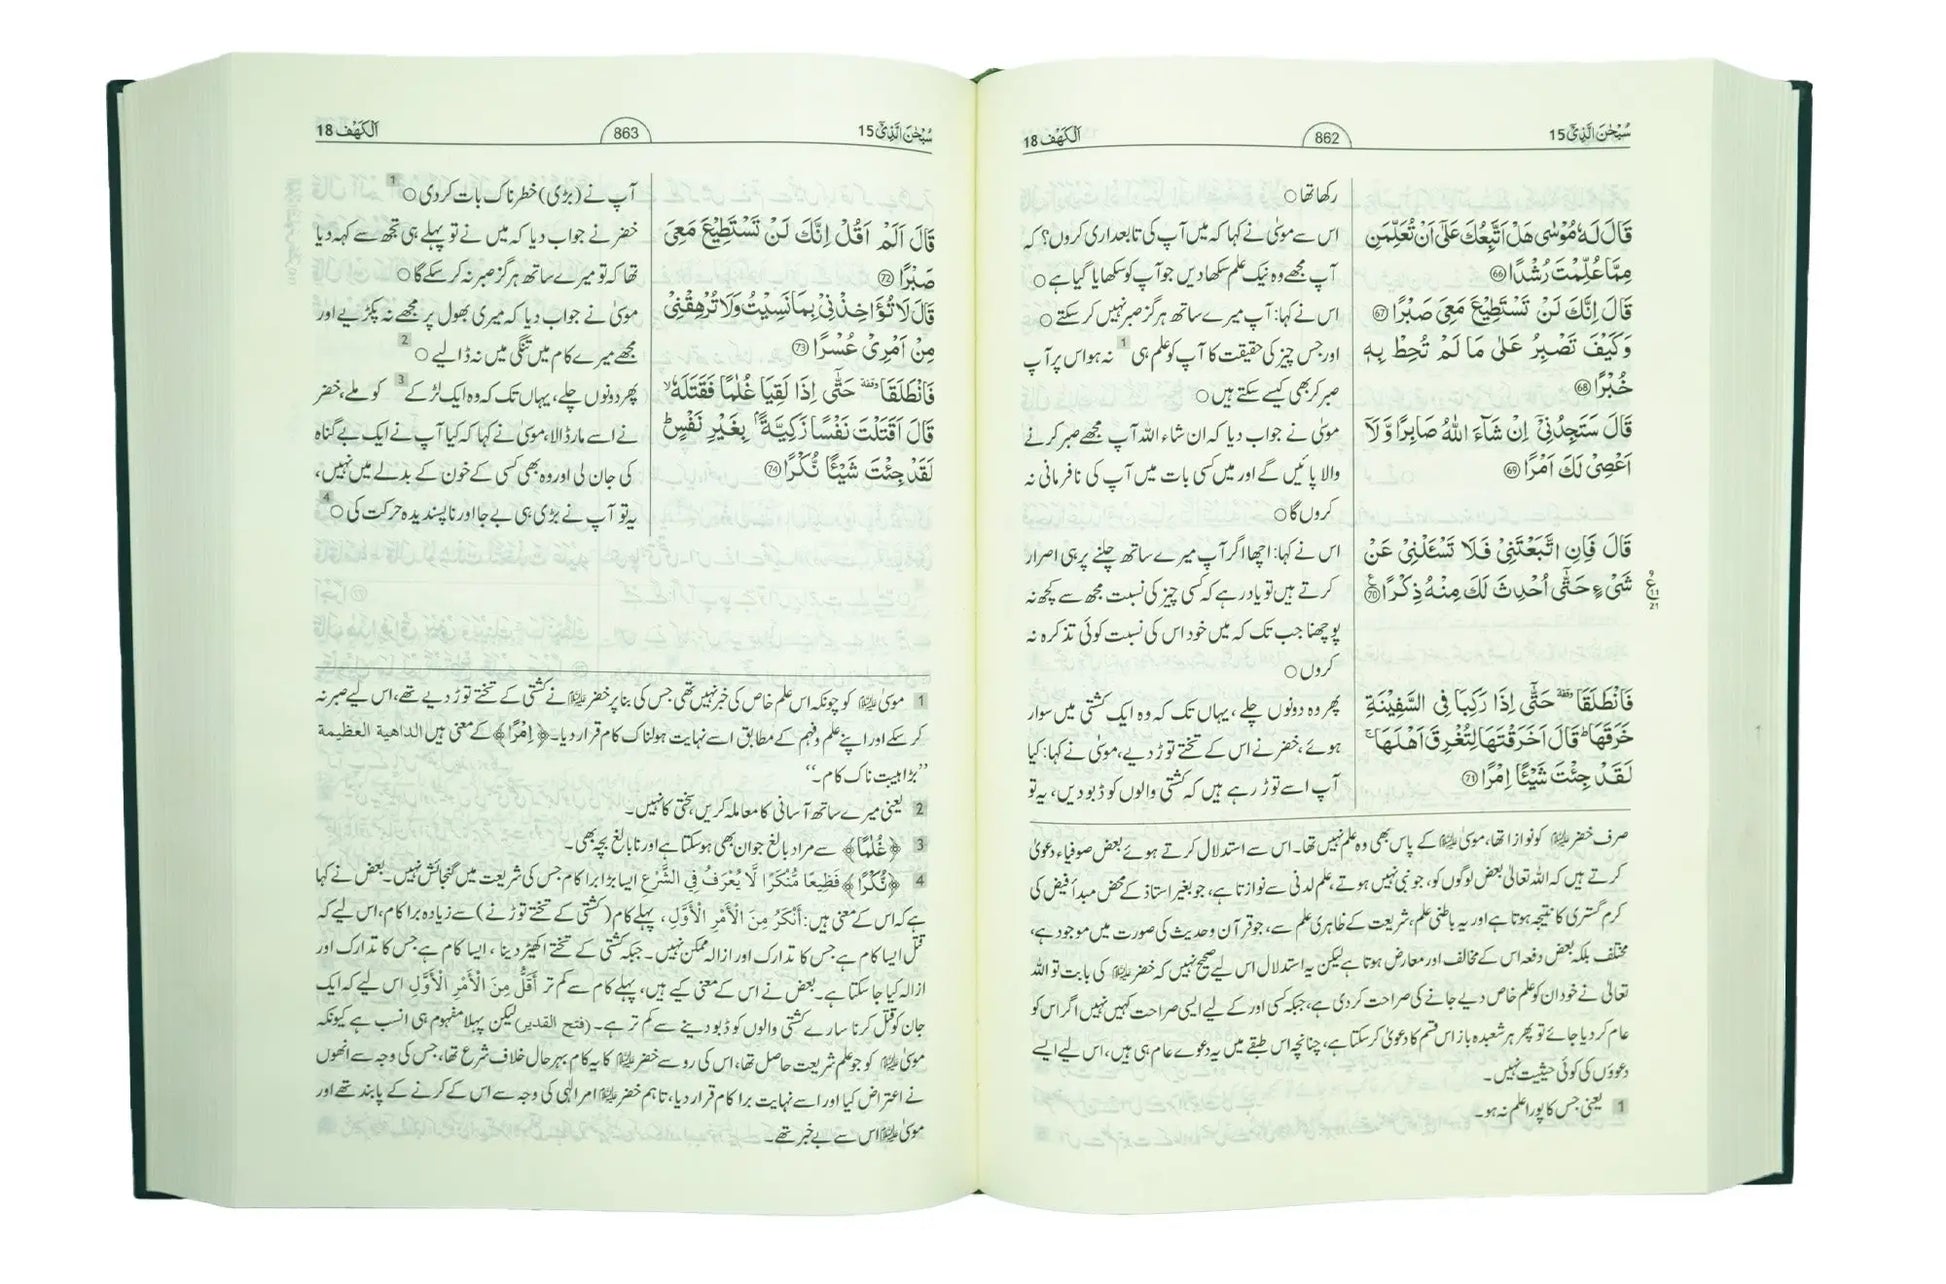 سُبْحٰنَ الَّذِیْۤ 15
862
اَلْكَهْف 18
قَالَ لَهٗ مُوْسٰى هَلْ اَتَّبِعُكَ عَلٰۤى اَنْ تُعَلِّمَنِ
مِمَّا عُلِّمْتَ رُشْدًا ﴿66﴾
قَالَ اِنَّكَ لَنْ تَسْتَطِیْعَ مَعِیَ صَبْرًا ﴿67﴾
وَ كَیْفَ تَصْبِرُ عَلٰى مَا لَمْ تُحِطْ بِهٖ
خُبْرًا ﴿68﴾
قَالَ سَتَجِدُنِیْۤ اِنْ شَآءَ اللّٰهُ صَابِرًا وَّ لَاۤ
اَعْصِیْ لَكَ اَمْرًا ﴿69﴾
قَالَ فَاِنِ اتَّبَعْتَنِیْ فَلَا تَسْـَٔلْنِیْ عَنْ
شَیْءٍ حَتّٰۤى اُحْدِثَ لَكَ مِنْهُ ذِكْرًا ﴿70﴾
فَانْطَلَقَا ۥ حَتّٰۤى اِذَا رَكِبَا فِی السَّفِیْنَةِ
خَرَقَهَا ؕ قَالَ اَخَرَقْتَهَا لِتُغْرِقَ اَهْلَهَا ۚ
لَقَدْ جِئْتَ شَیْـًٔا اِمْرًا ﴿71﴾
رکھا تھا ○
اس سے موسیٰ نے کہا کہ میں آپ کی تابعداری کروں؟ کہ
آپ مجھے وہ نیک علم سکھا دیں جو آپ کو سکھایا گیا ہے ○
اس نے کہا: آپ میرے ساتھ ہرگز صبر نہیں کر سکتے ○
اور جس چیز کی حقیقت کا آپ کو علم ہی 1 نہ ہو اس پر آپ
صبر کر بھی کیسے سکتے ہیں ○
موسیٰ نے جواب دیا کہ ان شاء اللہ آپ مجھے صبر کرنے
والا پائیں گے اور میں کسی بات میں آپ کی نافرمانی نہ
کروں گا ○
اس نے کہا: اچھا اگر آپ میرے ساتھ چلنے پر ہی اصرار
کرتے ہیں تو یاد رہے کہ کسی چیز کی نسبت مجھ سے کچھ نہ
پوچھنا جب تک کہ میں خود اس کی نسبت کوئی تذکرہ نہ
کروں ○
پھر وہ دونوں چلے، یہاں تک کہ وہ ایک کشتی میں سوار
ہوئے، خضر نے اس کے تختے توڑ دیے، موسیٰ نے کہا: کیا
آپ اسے توڑ رہے ہیں کہ کشتی والوں کو ڈبو دیں، یہ تو
صرف خضر علیہ السلام کو نوازا تھا، موسیٰ علیہ السلام کے پاس بھی وہ علم نہیں تھا۔ اس سے استدلال کرتے ہوئے بعض صوفیاء دعویٰ
کرتے ہیں کہ اللہ تعالیٰ بعض لوگوں کو، جو نبی نہیں ہوتے، علم لدنی سے نوازتا ہے، جو بغیر استاذ کے محض مبدأ فیض کی
کرم گستری کا نتیجہ ہوتا ہے اور یہ باطنی علم، شریعت کے ظاہری علم سے، جو قرآن و حدیث کی صورت میں موجود ہے،
مختلف بلکہ بعض دفعہ اس کے مخالف اور معارض ہوتا ہے لیکن یہ استدلال اس لیے صحیح نہیں کہ خضر علیہ السلام کی بابت تو اللہ
تعالیٰ نے خود ان کو علم خاص دیے جانے کی صراحت کر دی ہے، جبکہ کسی اور کے لیے ایسی صراحت کہیں نہیں اگر اس کو
عام کر دیا جائے تو پھر ہر شعبدہ باز اس قسم کا دعویٰ کر سکتا ہے، چنانچہ اس طبقے میں یہ دعوے عام ہی ہیں، اس لیے ایسے
دعوؤں کی کوئی حیثیت نہیں۔
1 یعنی جس کا پورا علم نہ ہو۔
سُبْحٰنَ الَّذِیْۤ 15
863
اَلْكَهْف 18
قَالَ اَلَمْ اَقُلْ اِنَّكَ لَنْ تَسْتَطِیْعَ مَعِیَ
صَبْرًا ﴿72﴾
قَالَ لَا تُؤَاخِذْنِیْ بِمَا نَسِیْتُ وَ لَا تُرْهِقْنِیْ
مِنْ اَمْرِیْ عُسْرًا ﴿73﴾
فَانْطَلَقَا ۥ حَتّٰۤى اِذَا لَقِیَا غُلٰمًا فَقَتَلَهٗ ۙ
قَالَ اَقَتَلْتَ نَفْسًا زَكِیَّةًۢ بِغَیْرِ نَفْسٍ ؕ
لَقَدْ جِئْتَ شَیْـًٔا نُّكْرًا ﴿74﴾
آپ نے (بڑی) خطرناک بات کر دی ○ 1
خضر نے جواب دیا کہ میں نے تو پہلے ہی تجھ سے کہہ دیا
تھا کہ تو میرے ساتھ ہرگز صبر نہ کر سکے گا ○
موسیٰ نے جواب دیا کہ میری بھول پر مجھے نہ پکڑیے اور
مجھے میرے کام میں تنگی میں نہ ڈالیے ○ 2
پھر دونوں چلے، یہاں تک کہ وہ ایک لڑکے 3 کو ملے، خضر
نے اسے مار ڈالا، موسیٰ نے کہا کہ کیا آپ نے ایک بے گناہ
کی جان لی اور وہ بھی کسی کے خون کے بدلے میں نہیں،
یہ تو آپ نے بڑی ہی بے جا اور ناپسندیدہ حرکت کی ○ 4
1 موسیٰ علیہ السلام کو چونکہ اس علم خاص کی خبر نہیں تھی جس کی بنا پر خضر علیہ السلام نے کشتی کے تختے توڑ دیے تھے، اس لیے صبر نہ
کر سکے اور اپنے علم و فہم کے مطابق اسے نہایت ہولناک کام قرار دیا۔ ﴿اِمْرًا﴾ کے معنی ہیں الداهية العظيمة
”بڑا ہیبت ناک کام۔“
2 یعنی میرے ساتھ آسانی کا معاملہ کریں، سختی کا نہیں۔
3 ﴿غُلٰمًا﴾ سے مراد بالغ جوان بھی ہو سکتا ہے اور نابالغ بچہ بھی۔
4 ﴿نُكْرًا﴾ فَظِيعًا مُّنْكَرًا لَّا يُعْرَفُ فِي الشَّرْعِ ایسا بڑا برا کام جس کی شریعت میں گنجائش نہیں۔ بعض نے کہا
ہے کہ اس کے معنی ہیں: أَنْكَرُ مِنَ الْأَمْرِ الْأَوَّلِ، پہلے کام (کشتی کے تختے توڑنے) سے زیادہ برا کام، اس لیے کہ
قتل ایسا کام ہے جس کا تدارک اور ازالہ ممکن نہیں۔ جبکہ کشتی کے تختے اکھیڑ دینا، ایسا کام ہے جس کا تدارک اور
ازالہ کیا جا سکتا ہے۔ بعض نے اس کے معنی کیے ہیں، پہلے کام سے کم تر أَقَلُّ مِنَ الْأَمْرِ الْأَوَّلِ اس لیے کہ ایک
جان کو قتل کرنا سارے کشتی والوں کو ڈبو دینے سے کم تر ہے۔ (فتح القدير) لیکن پہلا مفہوم ہی انسب ہے کیونکہ
موسیٰ علیہ السلام کو جو علم شریعت حاصل تھا، اس کی رو سے خضر علیہ السلام کا یہ کام بہرحال خلاف شرع تھا، جس کی وجہ سے انھوں
نے اعتراض کیا اور اسے نہایت برا کام قرار دیا، تاہم خضر علیہ السلام امر الٰہی کی وجہ سے اس کے کرنے کے پابند تھے اور
موسیٰ علیہ السلام اس سے بے خبر تھے۔